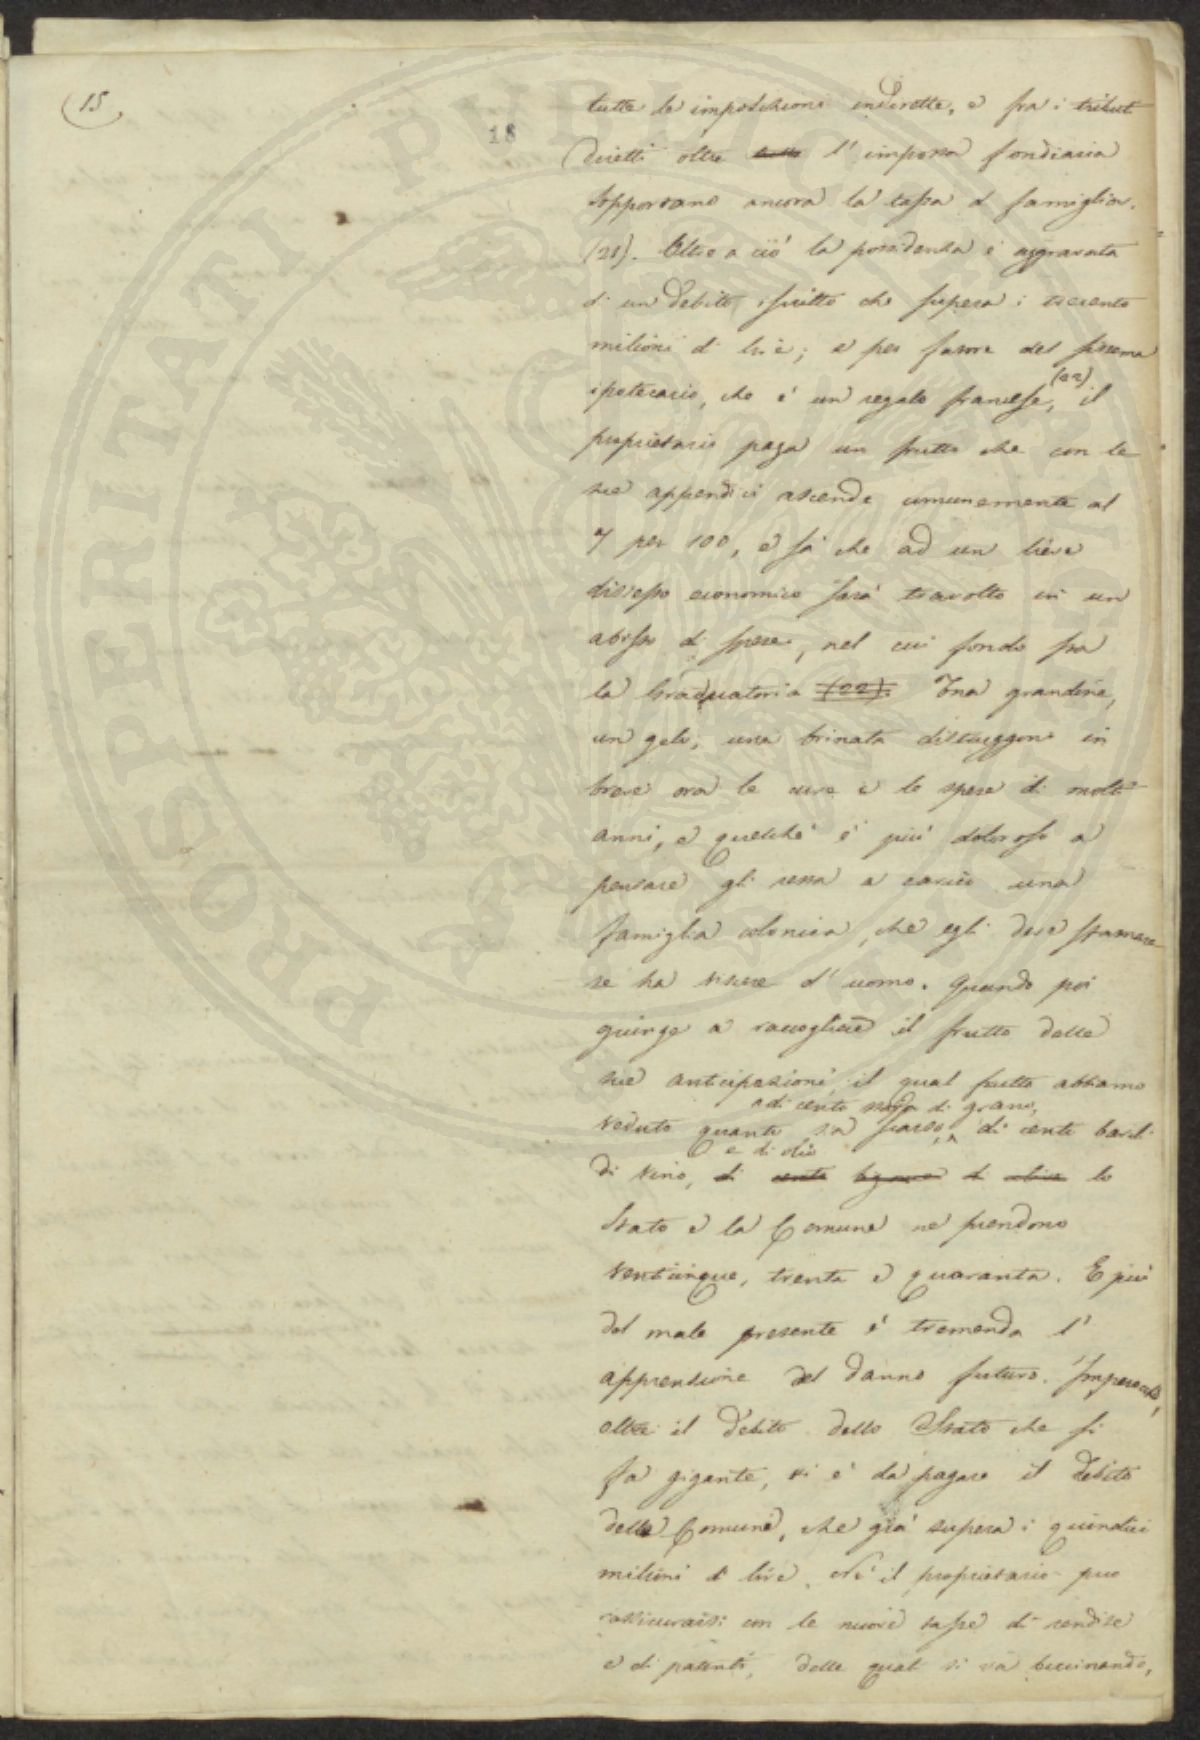 15
18
tutte le imposizioni indirette, e fra i tributi
diretti oltre tutto l'imposta fondiaria
sopportano ancora la tassa di famiglia.
(21). Oltre a ciò la possidenza è aggravata
di un debito iscritto che supera i trecento
milioni di lire; e per favore del sistema
ipotecario, che è un regalo francese, (22) il
proprietario paga un frutto che con le
sue appendici ascende comunemente al
7 per 100, e fa che ad un lieve
dissesto economico sarà travolto in un
abisso di spese, nel cui fondo sta
la Graduatoria (22). Una grandine,
un gelo, una brinata distruggono in
breve ora le cure e le spese di molti
anni, e quelchè è più doloroso a
pensare gli resta a carico una
famiglia colonica, che egli deve sfamare
se ha viscere d'uomo. Quando poi
giunge a raccogliere il frutto delle
sue anticipazioni, il qual frutto abbiamo
di cento staja di grano,
veduto quanto sia scarso, di cento barili
e di olio
di vino, di cento di olive lo
Stato e la Comune ne prendono
venticinque, trenta e quaranta. E più
del male presente è tremenda l'
apprensione del danno futuro. Imperocchè,
oltre il debito dello Stato che si
fa gigante, vi è da pagare il debito
delle Comune, che già supera i quindici
milioni di lire. Nè il proprietario può
rassicurarsi con le nuove tasse di rendite
e di patenti, delle quali si va bucinando,